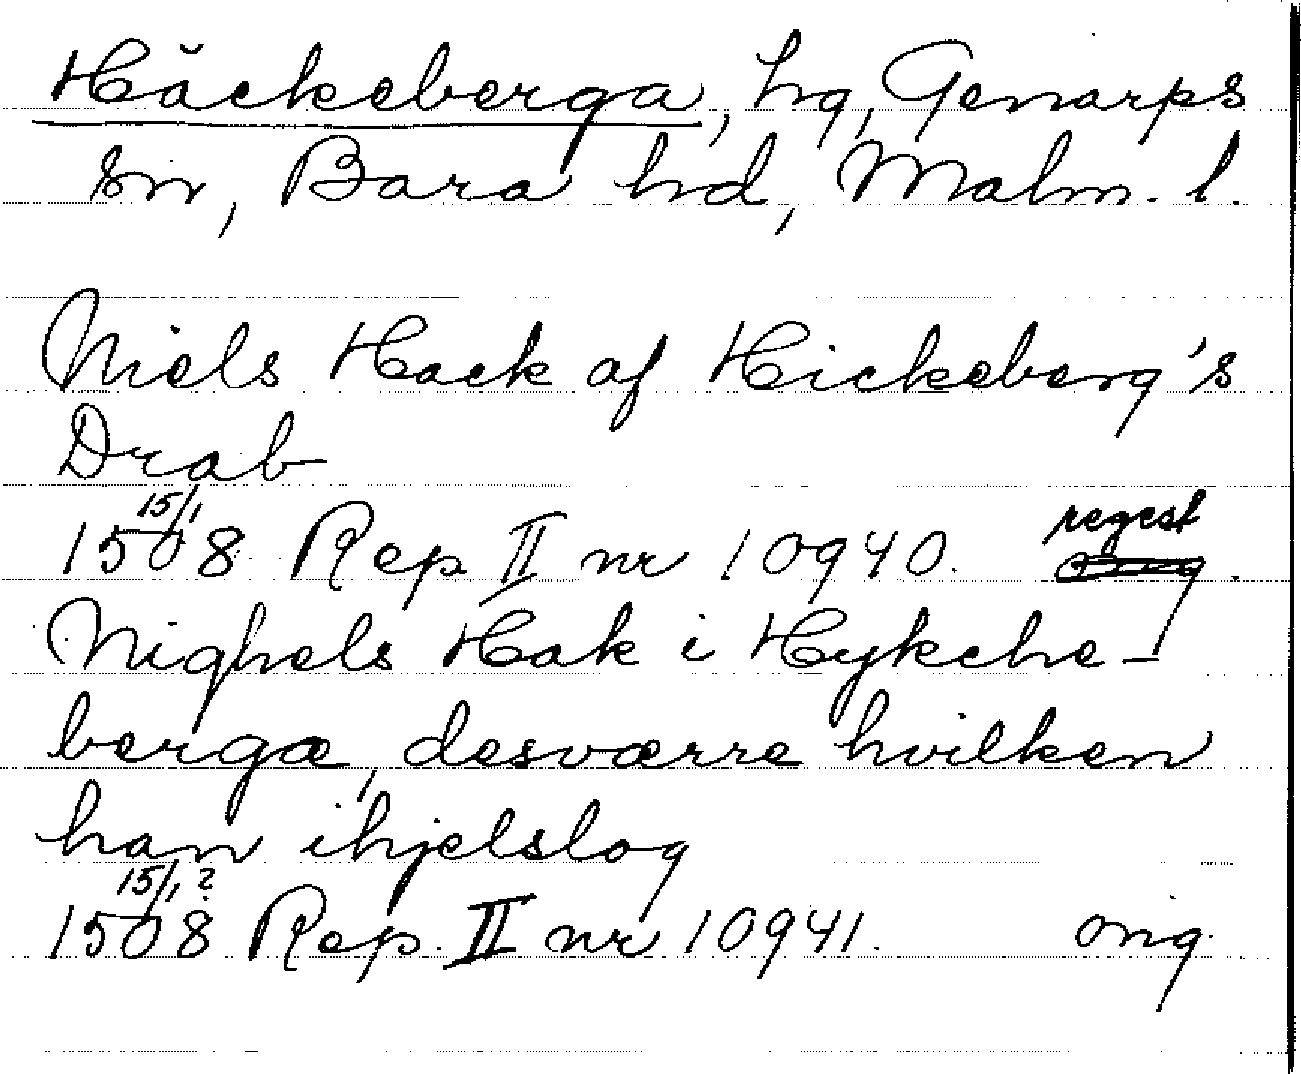 Häckeberga, hg, Genarps
sn, Bara hd, Malm. l.
Niels Hack af Hickeberg's
Drab
15/1
1508 Rep II nr 10940. regest
Nighels Hak i Hykche-
bergæ, desværre hvilken
han ihjelslog
15/1 ?
1508 Rep. II nr 10941. orig.